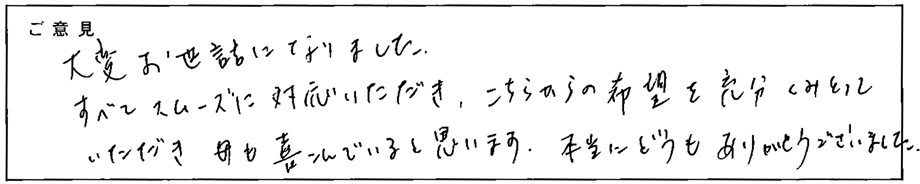 ご意見
大変お世話になりました.
すべてスムーズに対応いただき、こちらからの希望を充分くみとって
いただき 母も喜こんでいると思います. 本当にどうもありがとうございました.